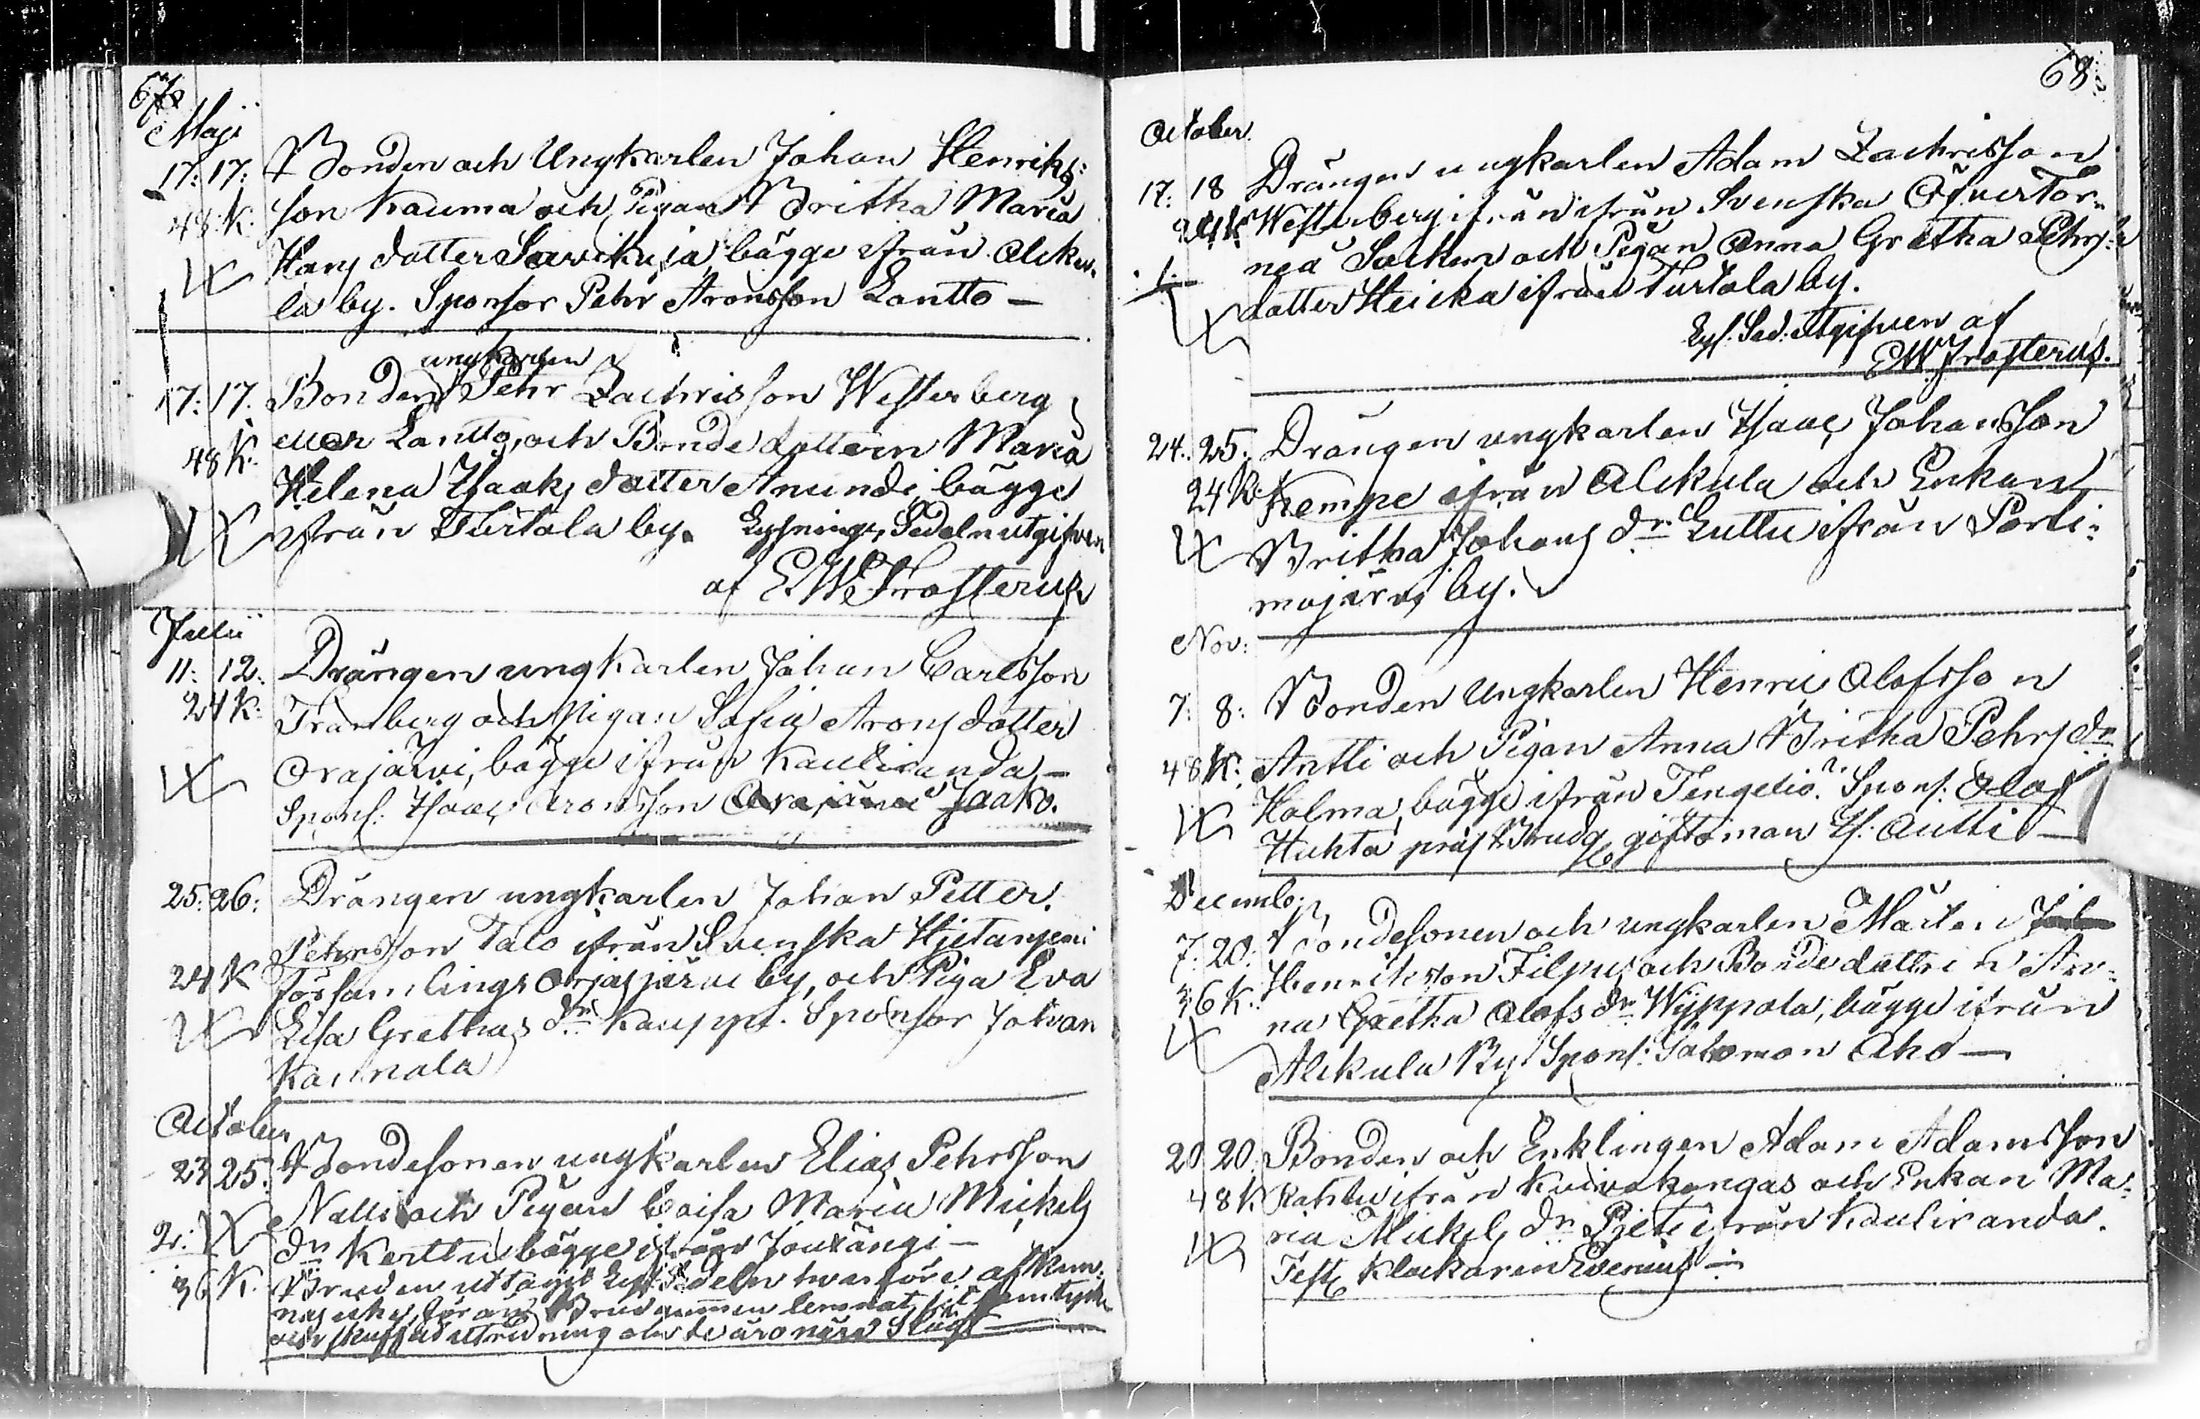 67.
Maji
17: 17: Bonden och Ungkarlen Johan Henriks:
48 K. son Kauma och Pigan Britha Maria
Hans dotter Savikuja, bägge ifrån Alku
la by. Sponsor Pehr Aronsson Lantto —
ungkarlen
17: 17. Bonden Pehr Zachrisson Westerberg
eller Lantto, och Bonde dottern Maria
48 K. Helena Isaaks dotter Anundi, bägge
ifrån Turtola by. Lysnings Sedeln utgifven
af E.W. Frosterus
Julii
11: 12. Drängen ungkarlen Johan Carlsson
24 K. Framberg och Pigan Sofia Arons dotter
Orajärvi, bägge ifrån Kauliranda —
Spons: Isaac Aronsson Jaako.
25: 26: Drängen ungkarlen Johan Petter
Pehrsson Talo ifrån Svenska Hjetaniemi
24 K församlings by, och Piga Eva
Lisa Grethas dr Kauppi. Sponsor Johan
Kannala
October
23 25. Bondesonen ungkarlen Elias Pehrsson
Nalli och Pigan Caisa Maria Mickels
2: dr Kerttu bägge ifrån Jouxängi —
36 K. Bruden uttagit Lys. Sedeln hvarföre
Brudgummen lemnat sitt samtycke
utredning de äro nära Slägt
68.
October.
17: 18 Drängen ungkarlen Adam Zachrisson
24 K Westerberg ifrån ifrån Svenska ÖfverTor=
neå Socken och Pigan Anna Gretha Pehrs
dotter Heicka ifrån Turtola by.
Lys. Sed. Utgifven af
E.W. Frosterus.
24. 25. Drängen ungkarlen Isaac Johansson
24 K. Kempe ifrån Alkula och Enkan
Britha Johans dr Luttu ifrån Porti=
mojärvi by.
Nov:
7: 8: Bonden Ungkarlen Henric Olofsson
48 K: Antti och Pigan Anna Britha Pehrs dr
Holma, bägge ifrån Tengeliö. Spons: Olof
Huhta giftoman Is. Autti —
Decemb:
7: 20: Bondesonen och ungkarlen Mårten
36 K. Henriksson Filpus och Bonde dottern An=
na Gretha Olofs dr Wyppola, bägge ifrån
Alkula By. Spons: Salomon Aho —
20 20. Bonden och Enklingen Adam Adamsson
48 K. ifrån Kuivakangas och Enkan Ma=
ria Mickels dr ifrån Kauliranda.
Test: Klockaren